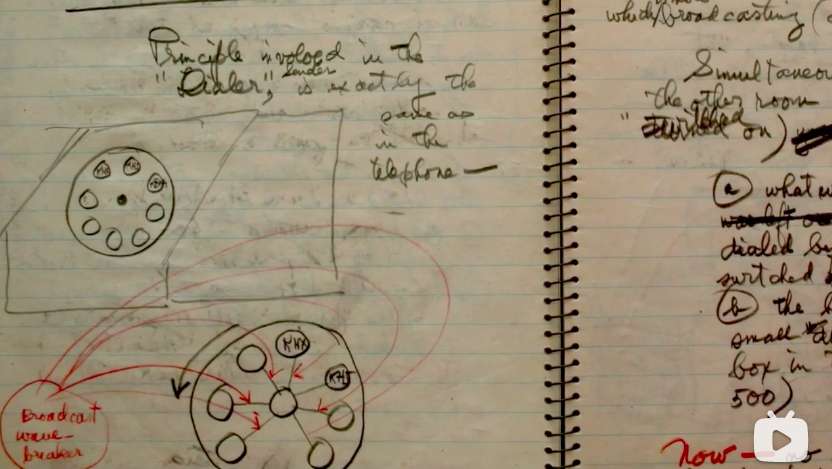 Principle involved in the
"Dialer," sender is exactly the
same as
in the
telephone —
KNX
Broadcast
wave-
breaker
which broadcasting (
Simultaneou
the other room
on)
(a) what
dialed
switched
(b) the
small
box in
500)
Now —